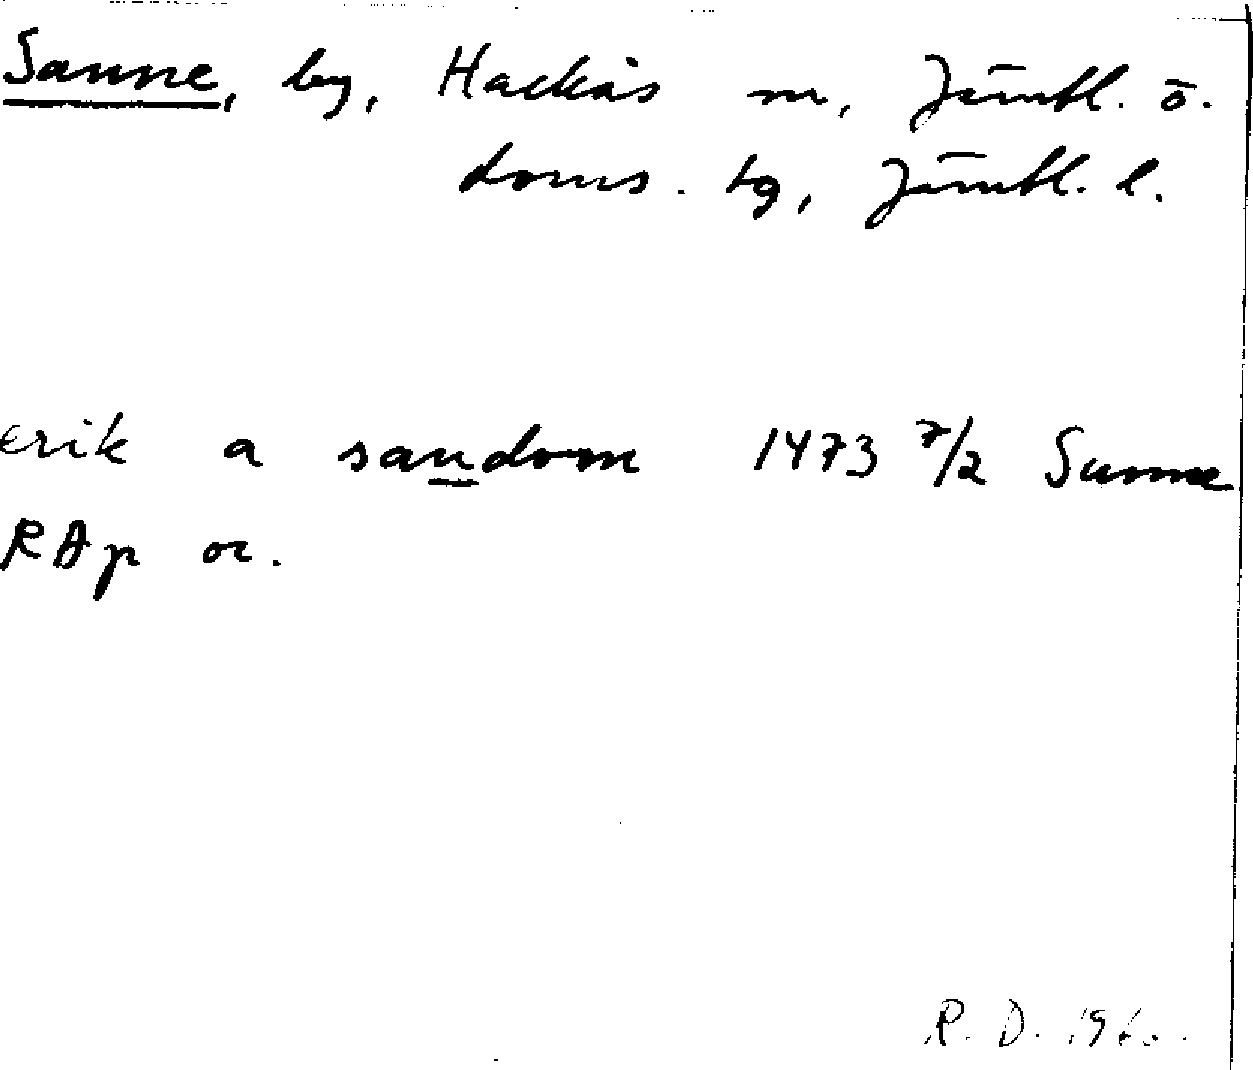 Sanne, by, Hackås sn, Jämtl. ö.
doms. tg, Jämtl. l.
erik a sandom 1473 7/2 Sunne
RAp or.
R. D. 196